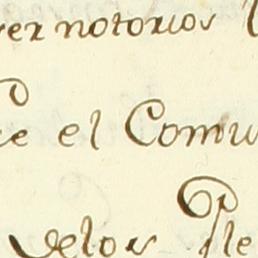 ver notorios
el Comu
delos